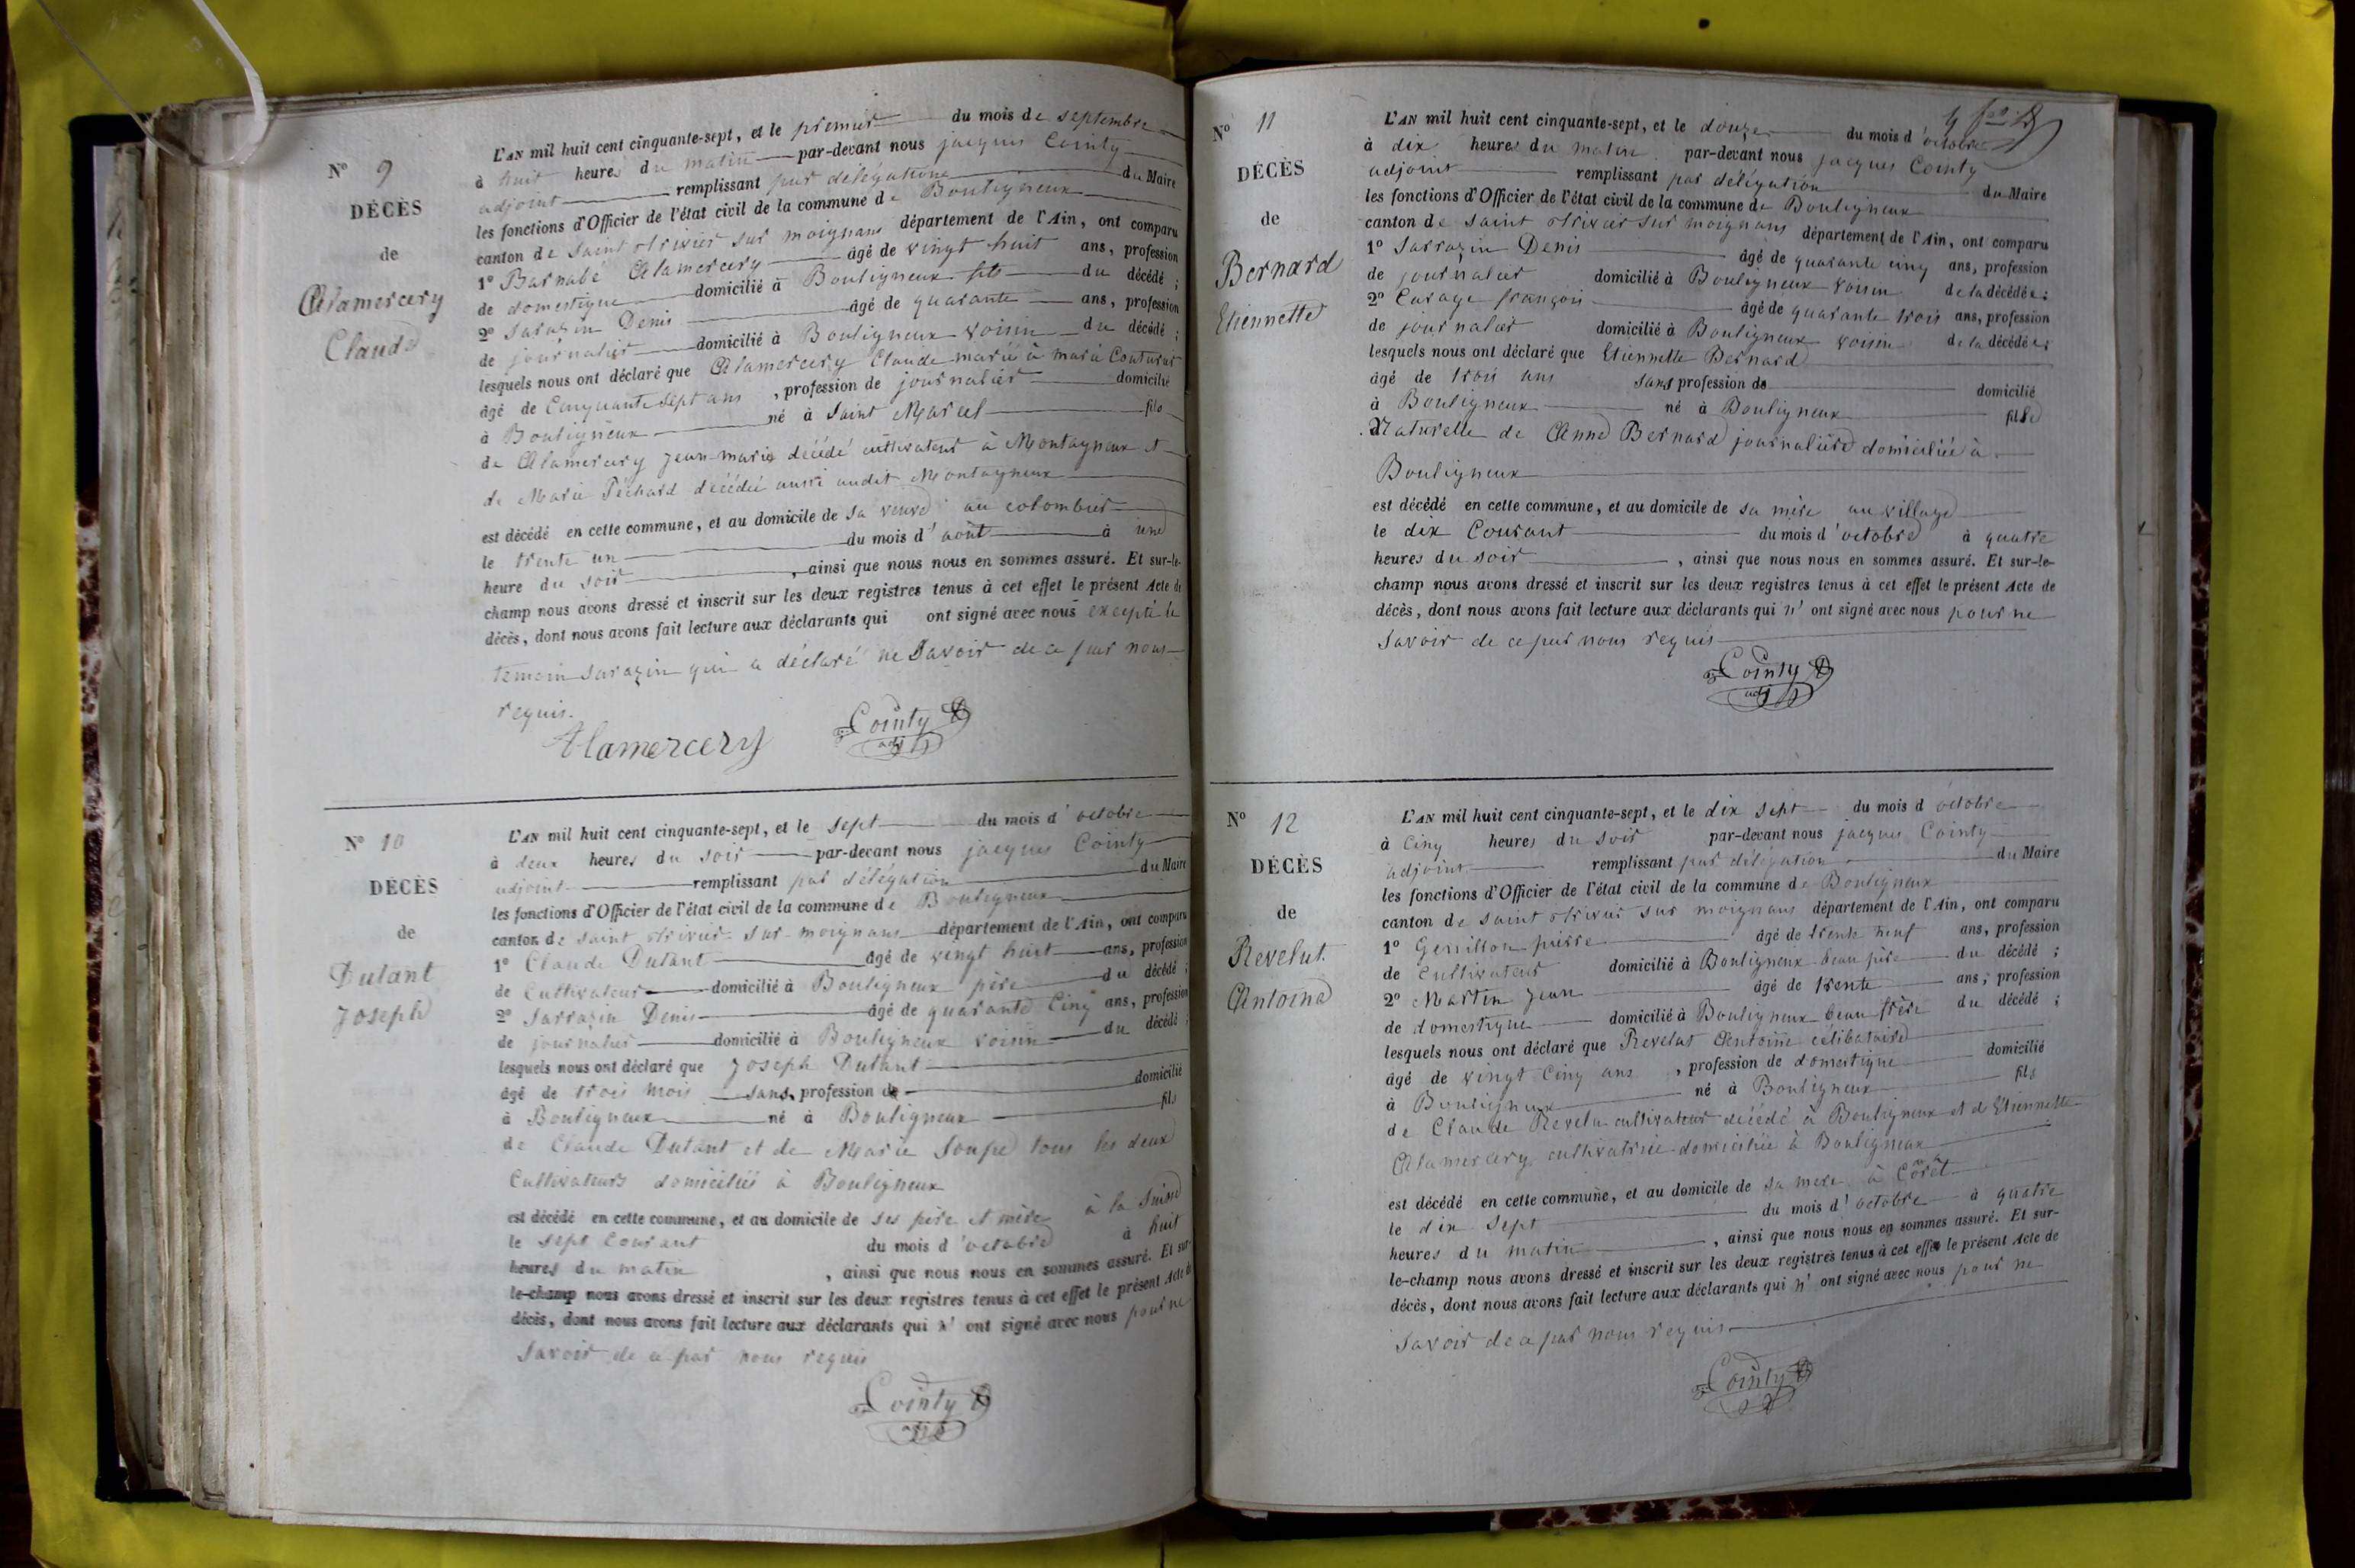 Nº 9
DÉCÈS
de
Alamercery
Claude
L'AN mil huit cent cinquante-sept, et le premier du mois de septembre
à huit heures du matin par-devant nous jacques Cointy
adjoint remplissant par délégation du Maire
les fonctions d'Officier de l'état civil de la commune de Bouligneux
canton de saint trivier sur moignans département de l'Ain, ont comparu
1º Barnabé Alamercery âgé de vingt huit ans, profession
de domestique domicilié à Bouligneux fils du décédé ;
2º Sarazin Denis âgé de quarante ans, profession
de journalier domicilié à Bouligneux voisin du décédé ;
lesquels nous ont déclaré que Alamercery Claude marié à marie Couturier
âgé de Cinquante sept ans , profession de journalier domicilié
à Bouligneux né à Saint Marcel fils
de Alamercery jean-marie décédé cultivateur à Montagneux et
de Marie Péchard décédée aussi audit Montagneux
est décédé en cette commune, et au domicile de sa veuve au colombier
le trente un du mois d'août à une
heure du soir , ainsi que nous nous en sommes assuré. Et sur-le-
champ nous avons dressé et inscrit sur les deux registres tenus à cet effet le présent Acte de
décès, dont nous avons fait lecture aux déclarants qui ont signé avec nous excepté le
temoin Sarazin qui a déclaré ne Savoir de ce par nous
requis.
Alamercery Cointy
adj
Nº 10
DÉCÈS
de
Dutant
Joseph
L'AN mil huit cent cinquante-sept, et le sept du mois d'octobre
à deux heures du soir par-devant nous jacques Cointy
adjoint remplissant par délégation du Maire
les fonctions d'Officier de l'état civil de la commune de Bouligneux
canton de saint trivier sur moignans département de l'Ain, ont comparu
1º Claude Dutant âgé de vingt huit ans, profession
de Cultivateur domicilié à Bouligneux père du décédé ;
2º Sarrazin Denis âgé de quarante Cinq ans, profession
de journalier domicilié à Bouligneux voisin du décédé ;
lesquels nous ont déclaré que Joseph Dutant
âgé de trois mois sans profession de domicilié
à Bouligneux né à Bouligneux fils
de Claude Dutant et de Marie Soupe tous les deux
Cultivateurs domiciliés à Bouligneux
est décédé en cette commune, et au domicile de ses père et mère à la
le sept Courant du mois d'octobre à huit
heures du matin , ainsi que nous nous en sommes assuré. Et sur-
le-champ nous avons dressé et inscrit sur les deux registres tenus à cet effet le présent Acte de
décès, dont nous avons fait lecture aux déclarants qui n'ont signé avec nous pour ne
Savoir de ce par nous requis
Cointy
Nº 11
DÉCÈS
de
Bernard
Etiennette
L'AN mil huit cent cinquante-sept, et le douze du mois d'octobre
à dix heures du matin par-devant nous jacques Cointy
adjoint remplissant par délégation du Maire
les fonctions d'Officier de l'état civil de la commune de Bouligneux
canton de saint trivier sur moignans département de l'Ain, ont comparu
1º Sarrazin Denis âgé de quarante cinq ans, profession
de journalier domicilié à Bouligneux voisin de la décédée ;
2º Curage françois âgé de quarante trois ans, profession
de journalier domicilié à Bouligneux voisin de la décédée ;
lesquels nous ont déclaré que Etiennette Bernard
âgé de trois ans sans profession de domicilié
à Bouligneux né à Bouligneux fille
Naturelle de Anne Bernard journalière domiciliée à
Bouligneux
est décédé en cette commune, et au domicile de sa mère au village
le dix Courant du mois d'octobre à quatre
heures du soir , ainsi que nous nous en sommes assuré. Et sur-le-
champ nous avons dressé et inscrit sur les deux registres tenus à cet effet le présent Acte de
décès, dont nous avons fait lecture aux déclarants qui n'ont signé avec nous pour ne
Savoir de ce par nous requis
Cointy
adj
Nº 12
DÉCÈS
de
Revelut
Antoine
L'AN mil huit cent cinquante-sept, et le dix sept du mois d'octobre
à Cinq heures du soir par-devant nous jacques Cointy
adjoint remplissant par délégation du Maire
les fonctions d'Officier de l'état civil de la commune de Bouligneux
canton de saint trivier sur moignans département de l'Ain, ont comparu
1º pierre âgé de trente neuf ans, profession
de Cultivateur domicilié à Bouligneux beau père du décédé ;
2º Martin Jean âgé de trente ans, profession
de domestique domicilié à Bouligneux beau frère du décédé ;
lesquels nous ont déclaré que Revelut Antoine célibataire
âgé de vingt Cinq ans , profession de domestique domicilié
à Bouligneux né à Bouligneux fils
de Claude Revelu cultivateur décédé à Bouligneux et d'Etiennette
Alamercery cultivatrice domiciliée à Bouligneux
est décédé en cette commune, et au domicile de sa mère à
le dix Sept du mois d'octobre à quatre
heures du matin , ainsi que nous nous en sommes assuré. Et sur-
le-champ nous avons dressé et inscrit sur les deux registres tenus à cet effet le présent Acte de
décès, dont nous avons fait lecture aux déclarants qui n'ont signé avec nous pour ne
Savoir de ce par nous requis
Cointy